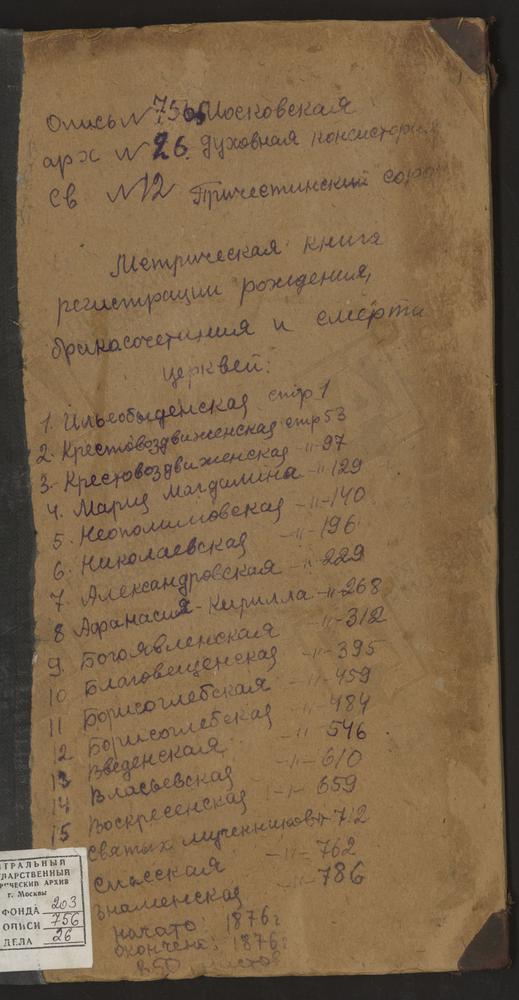 Опись № 756 Московская
арх № 26. духовная консистория
Св № 12 Пречестинский сорок
Метрическая книга
регистрации рождения,
бракасочетания и смерти
церквей:
1. Ильеобыденская стр 1
2. Крестовоздвиженская стр 53
3. Крестовоздвиженская -"- 97
4. Марии Магдалина -"- 129
5. Неополимовская -"- 140
6. Николаевская -"- 196
7. Александровская -"- 229
8 Афанасия-Кирилла -"- 268
9. Богоявленская -"- 312
10 Благовещенская -"- 395
11 Борисоглебская -"- 459
12 Борисоглебская -"- 484
13 Введенская -"- 546
14 Власьевская -"- 610
15 Воскресенская -"- 659
святых мученников -"- 712
Спасская -"- 762
Знаменская -"- 786
начато: 1876 г
окончено: 1876 г
850 листов
НТРАЛЬНЫЙ
УДАРСТВЕННЫЙ
РИЧЕСКИЙ АРХИВ
г. Москвы
ФОНДА 203
ОПИСИ 756
ДЕЛА 26